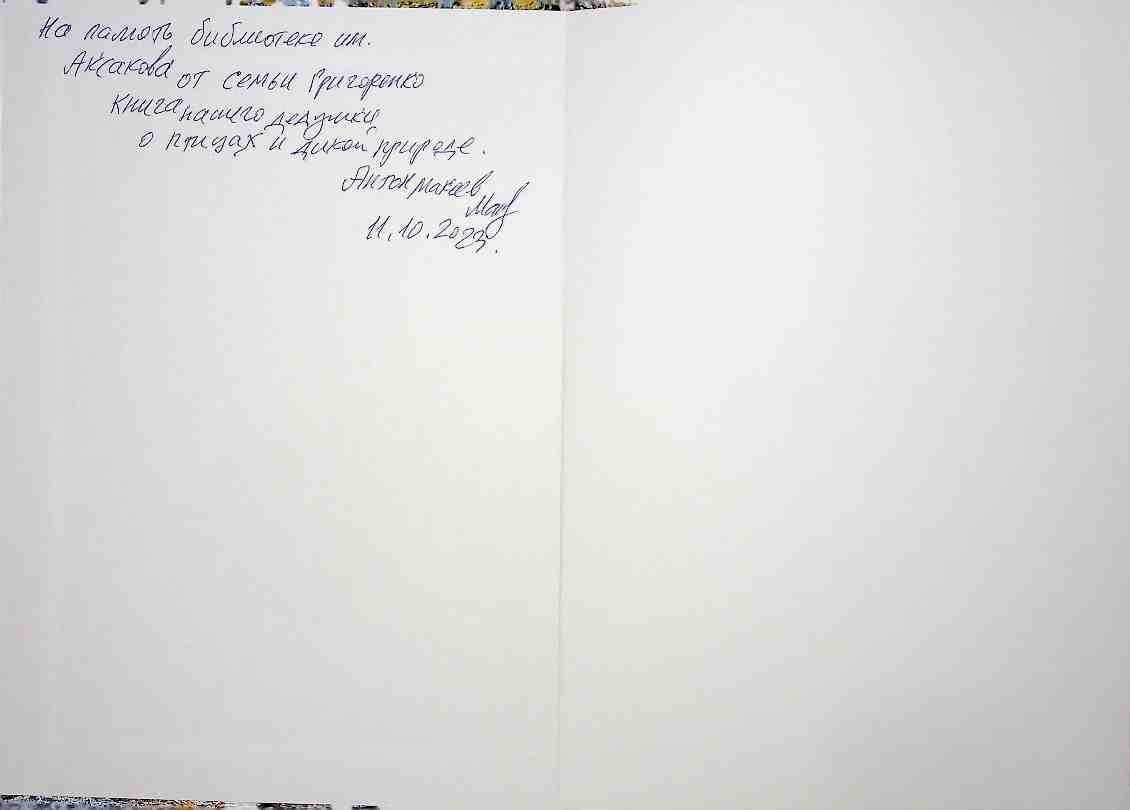 На память библиотеке им.
Аксакова от семьи Григоренко
Книга нашего дедушки
о птицах и дикой природе.
Антон Макеев
11.10.2023.